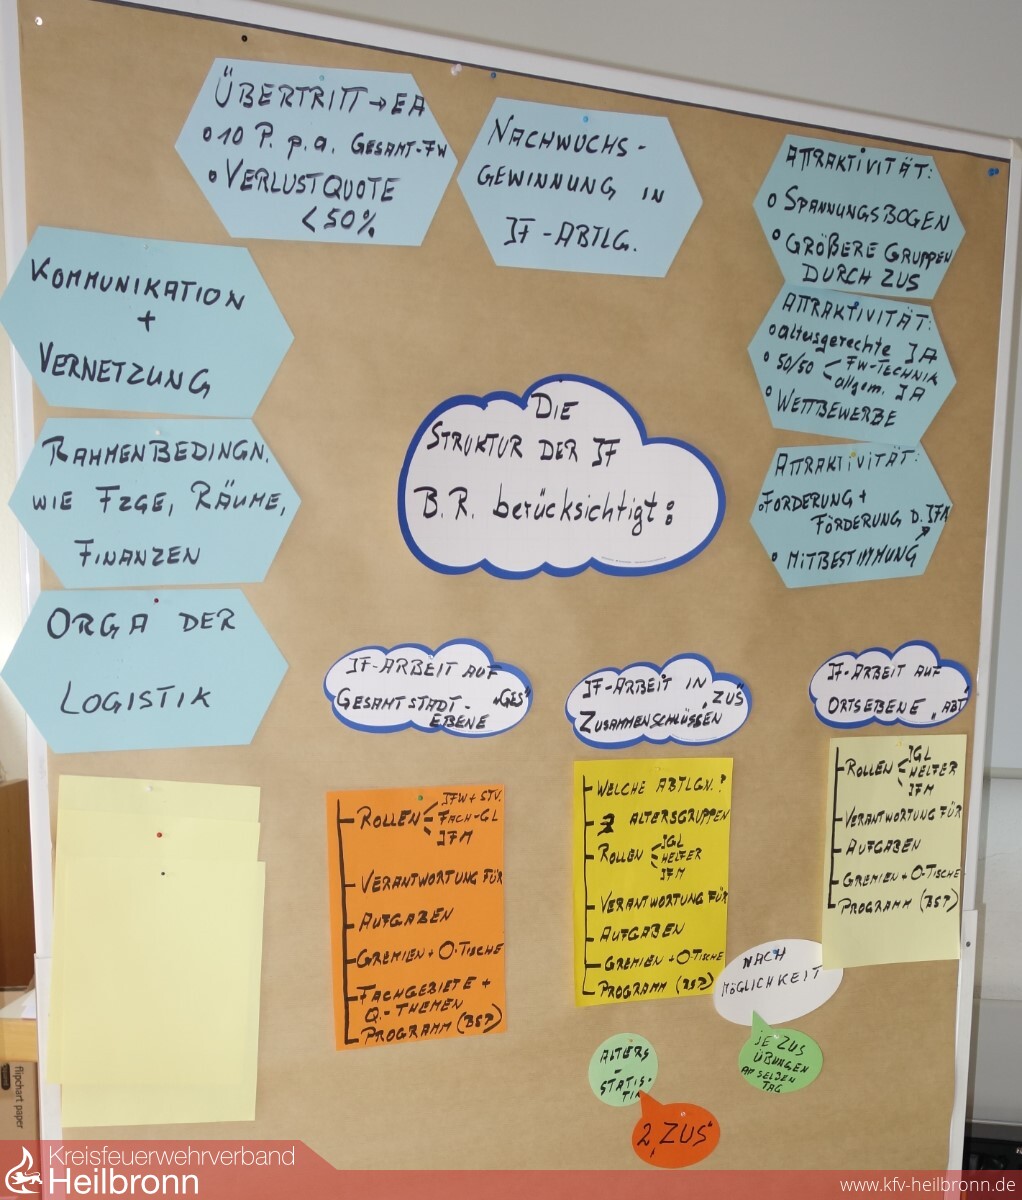 ÜBERTRITT → EA
• 10 P. p.a. GESAMT-FW
• VERLUSTQUOTE
< 50%
NACHWUCHS-
GEWINNUNG IN
JF-ABTLG.
ATTRAKTIVITÄT:
• SPANNUNGSBOGEN
• GRÖßERE GRUPPEN
DURCH ZUS
KOMMUNIKATION
+
VERNETZUNG
ATTRAKTIVITÄT:
• altersgerechte JA
• 50/50 < FW-TECHNIK
allgem. JA
• WETTBEWERBE
RAHMENBEDINGN.
WIE FZGE, RÄUME,
FINANZEN
DIE
STRUKTUR DER JF
B.R. berücksichtigt:
ATTRAKTIVITÄT:
• FORDERUNG +
FÖRDERUNG D. JFA
• MITBESTIMMUNG
ORGA DER
LOGISTIK
JF-ARBEIT AUF
GESAMTSTADT- „GES"
EBENE
JF-ARBEIT IN
ZUSAMMENSCHLÜSSEN „ZUS"
JF-ARBEIT AUF
ORTSEBENE „ABT"
ROLLEN JFW + STV.
FACH-GL
JFM
VERANTWORTUNG FÜR
AUFGABEN
GREMIEN + O-TISCHE
FACHGEBIETE +
Q.-THEMEN
PROGRAMM (BSP)
WELCHE ABTLGN.?
ALTERSGRUPPEN
ROLLEN JGL
HELFER
JFM
VERANTWORTUNG FÜR
AUFGABEN
GREMIEN + O-TISCHE
PROGRAMM (BSP)
ROLLEN JGL
HELFER
JFM
VERANTWORTUNG FÜR
AUFGABEN
GREMIEN + O-TISCHE
PROGRAMM (BSP)
NACH
MÖGLICHKEIT
JE ZUS
ÜBUNGEN
AM SELBEN
TAG
ALTERS
-
STATIS-
TIK
2 „ZUS"
flipchart paper
Kreisfeuerwehrverband
Heilbronn
www.kfv-heilbronn.de